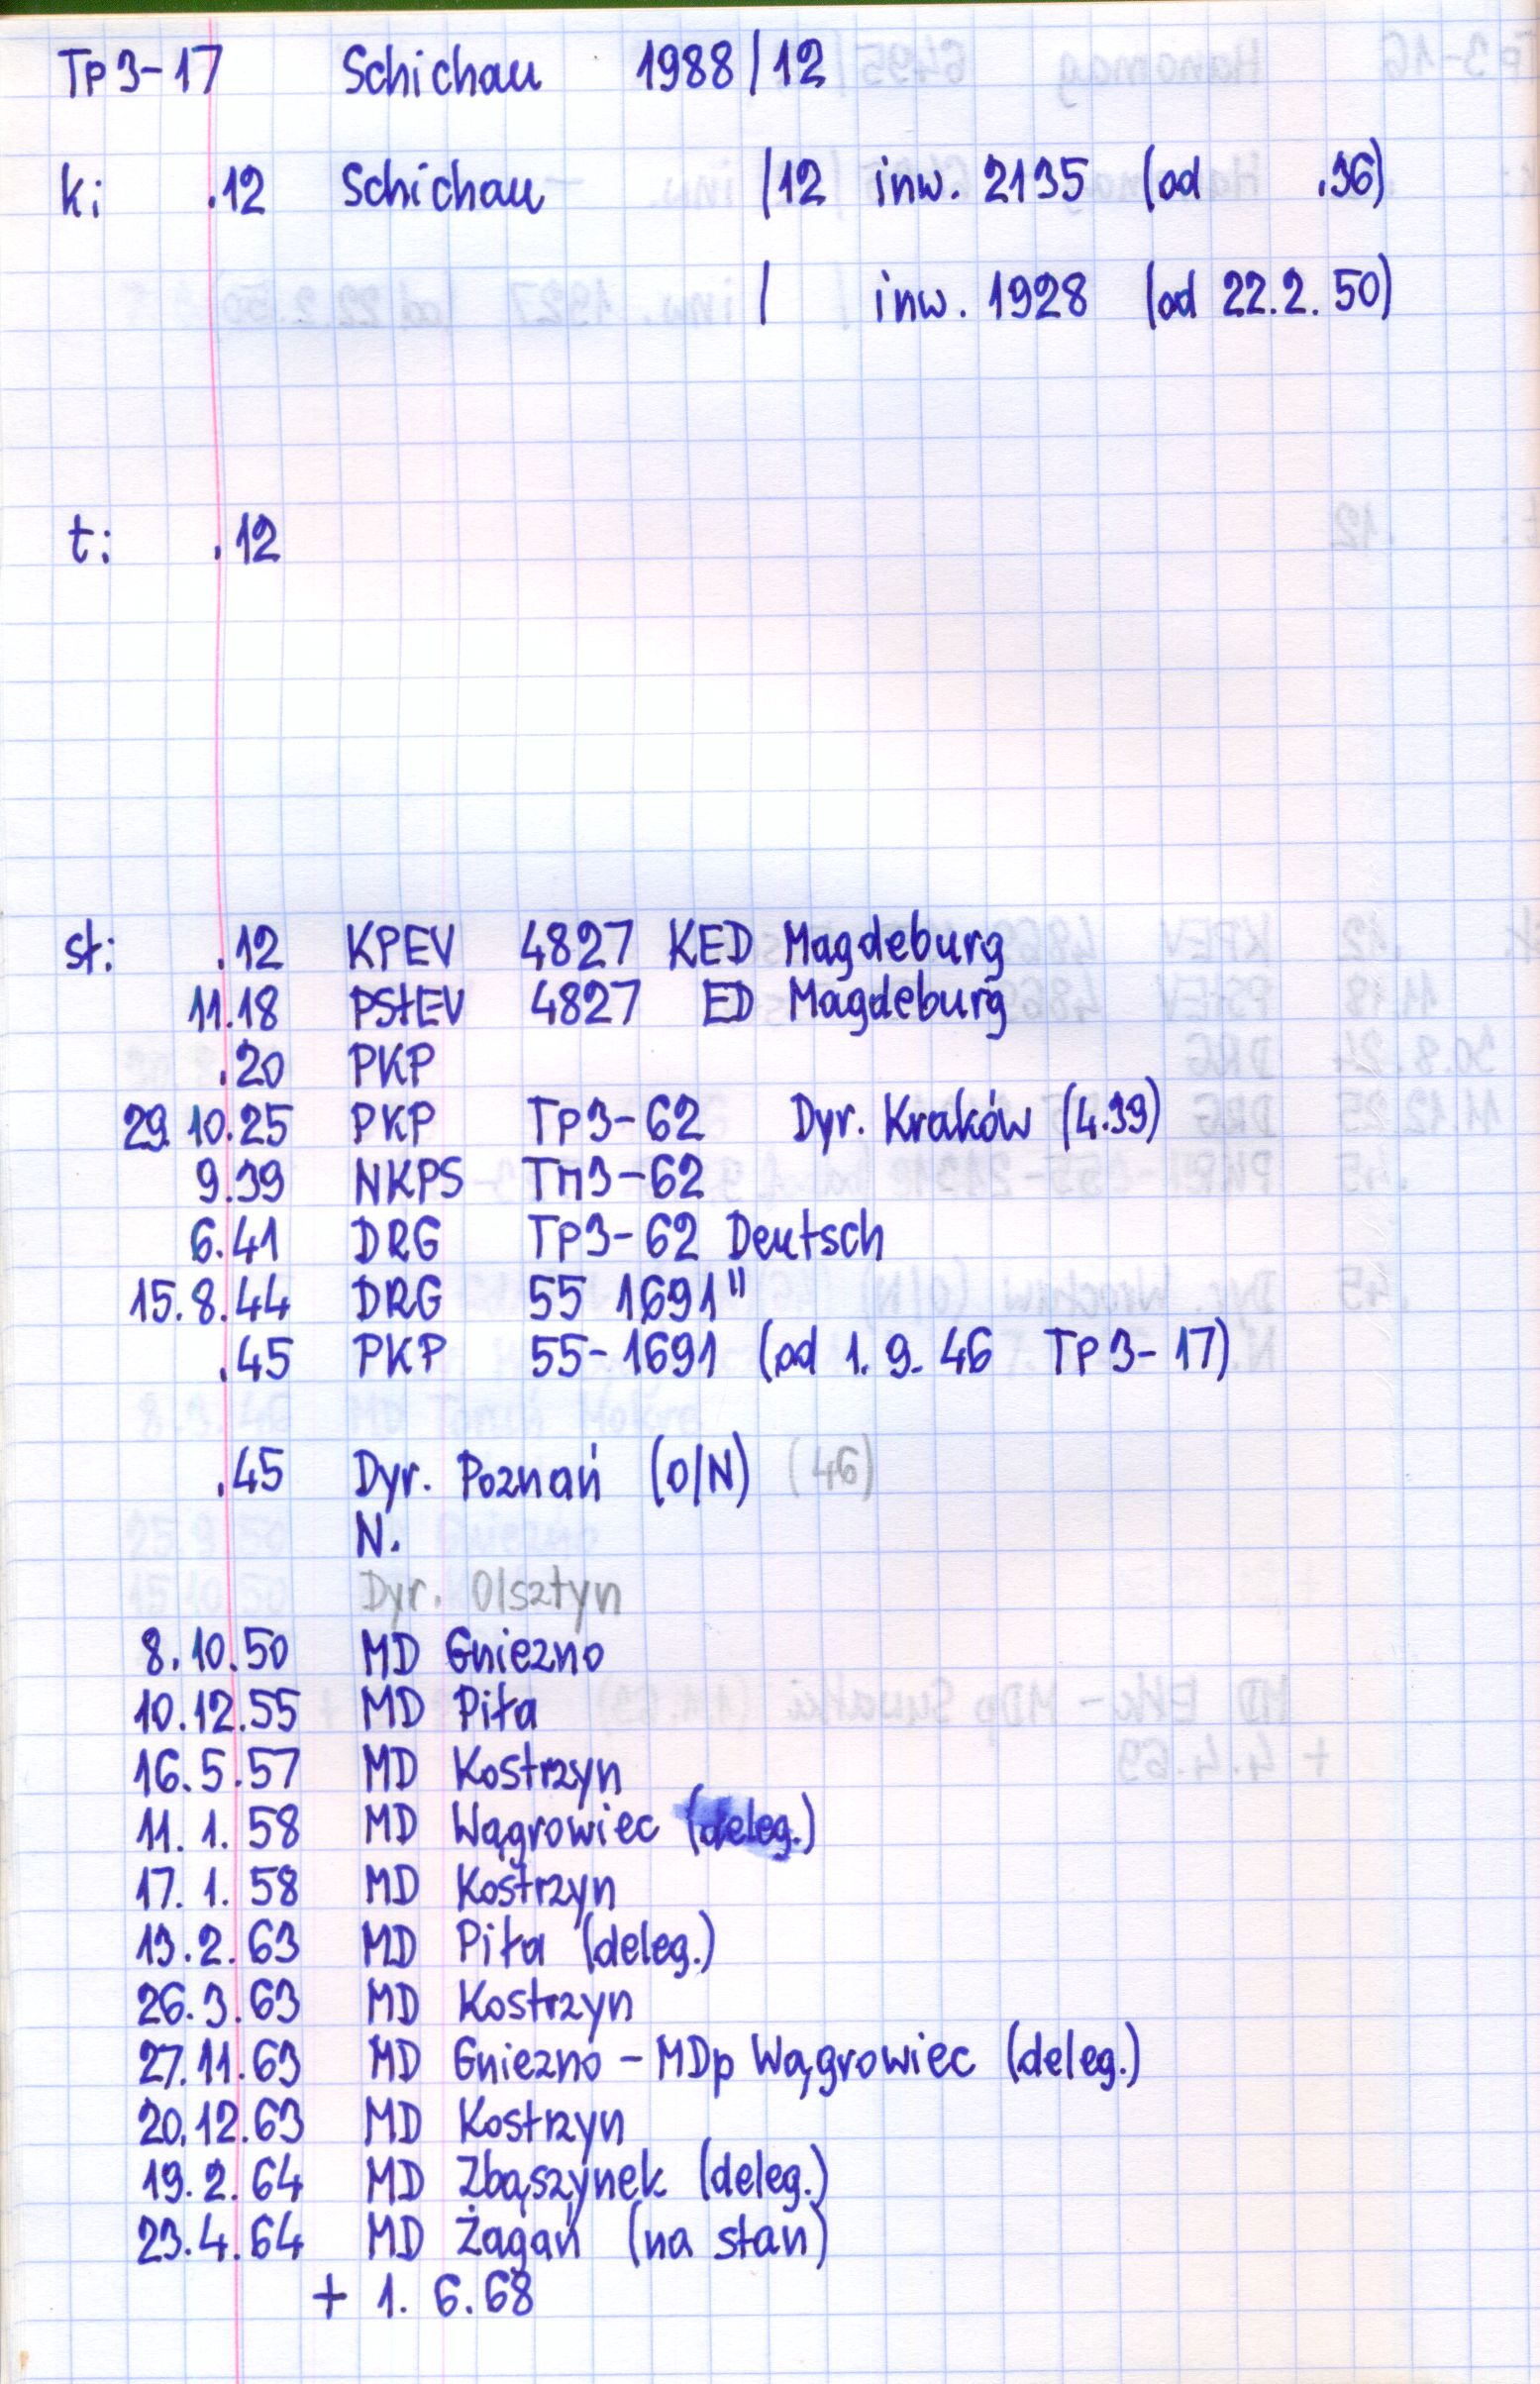 Tp3-17 Schichau 1988/12
k: .12 Schichau /12 inw. 2135 (od .36)
/ inw. 1928 (od 22.2.50)
t: .12
st: .12 KPEV 4827 KED Magdeburg
11.18 PStEV 4827 ED Magdeburg
.20 PKP
29.10.25 PKP Tp3-62 Dyr. Kraków (4.39)
9.39 NKPS Tп3-62
6.41 DRG Tp3-62 Deutsch
15.8.44 DRG 55 1691"
.45 PKP 55-1691 (od 1.9.46 Tp3-17)
.45 Dyr. Poznań (O/N) (46)
N.
Dyr. Olsztyn
8.10.50 MD Gniezno
10.12.55 MD Piła
16.5.57 MD Kostrzyn
11.1.58 MD Wągrowiec (deleg.)
17.1.58 MD Kostrzyn
13.2.63 MD Piła (deleg.)
26.3.63 MD Kostrzyn
27.11.63 MD Gniezno - MDp Wągrowiec (deleg.)
20.12.63 MD Kostrzyn
19.2.64 MD Zbąszynek (deleg.)
23.4.64 MD Żagań (na stan)
+ 1.6.68